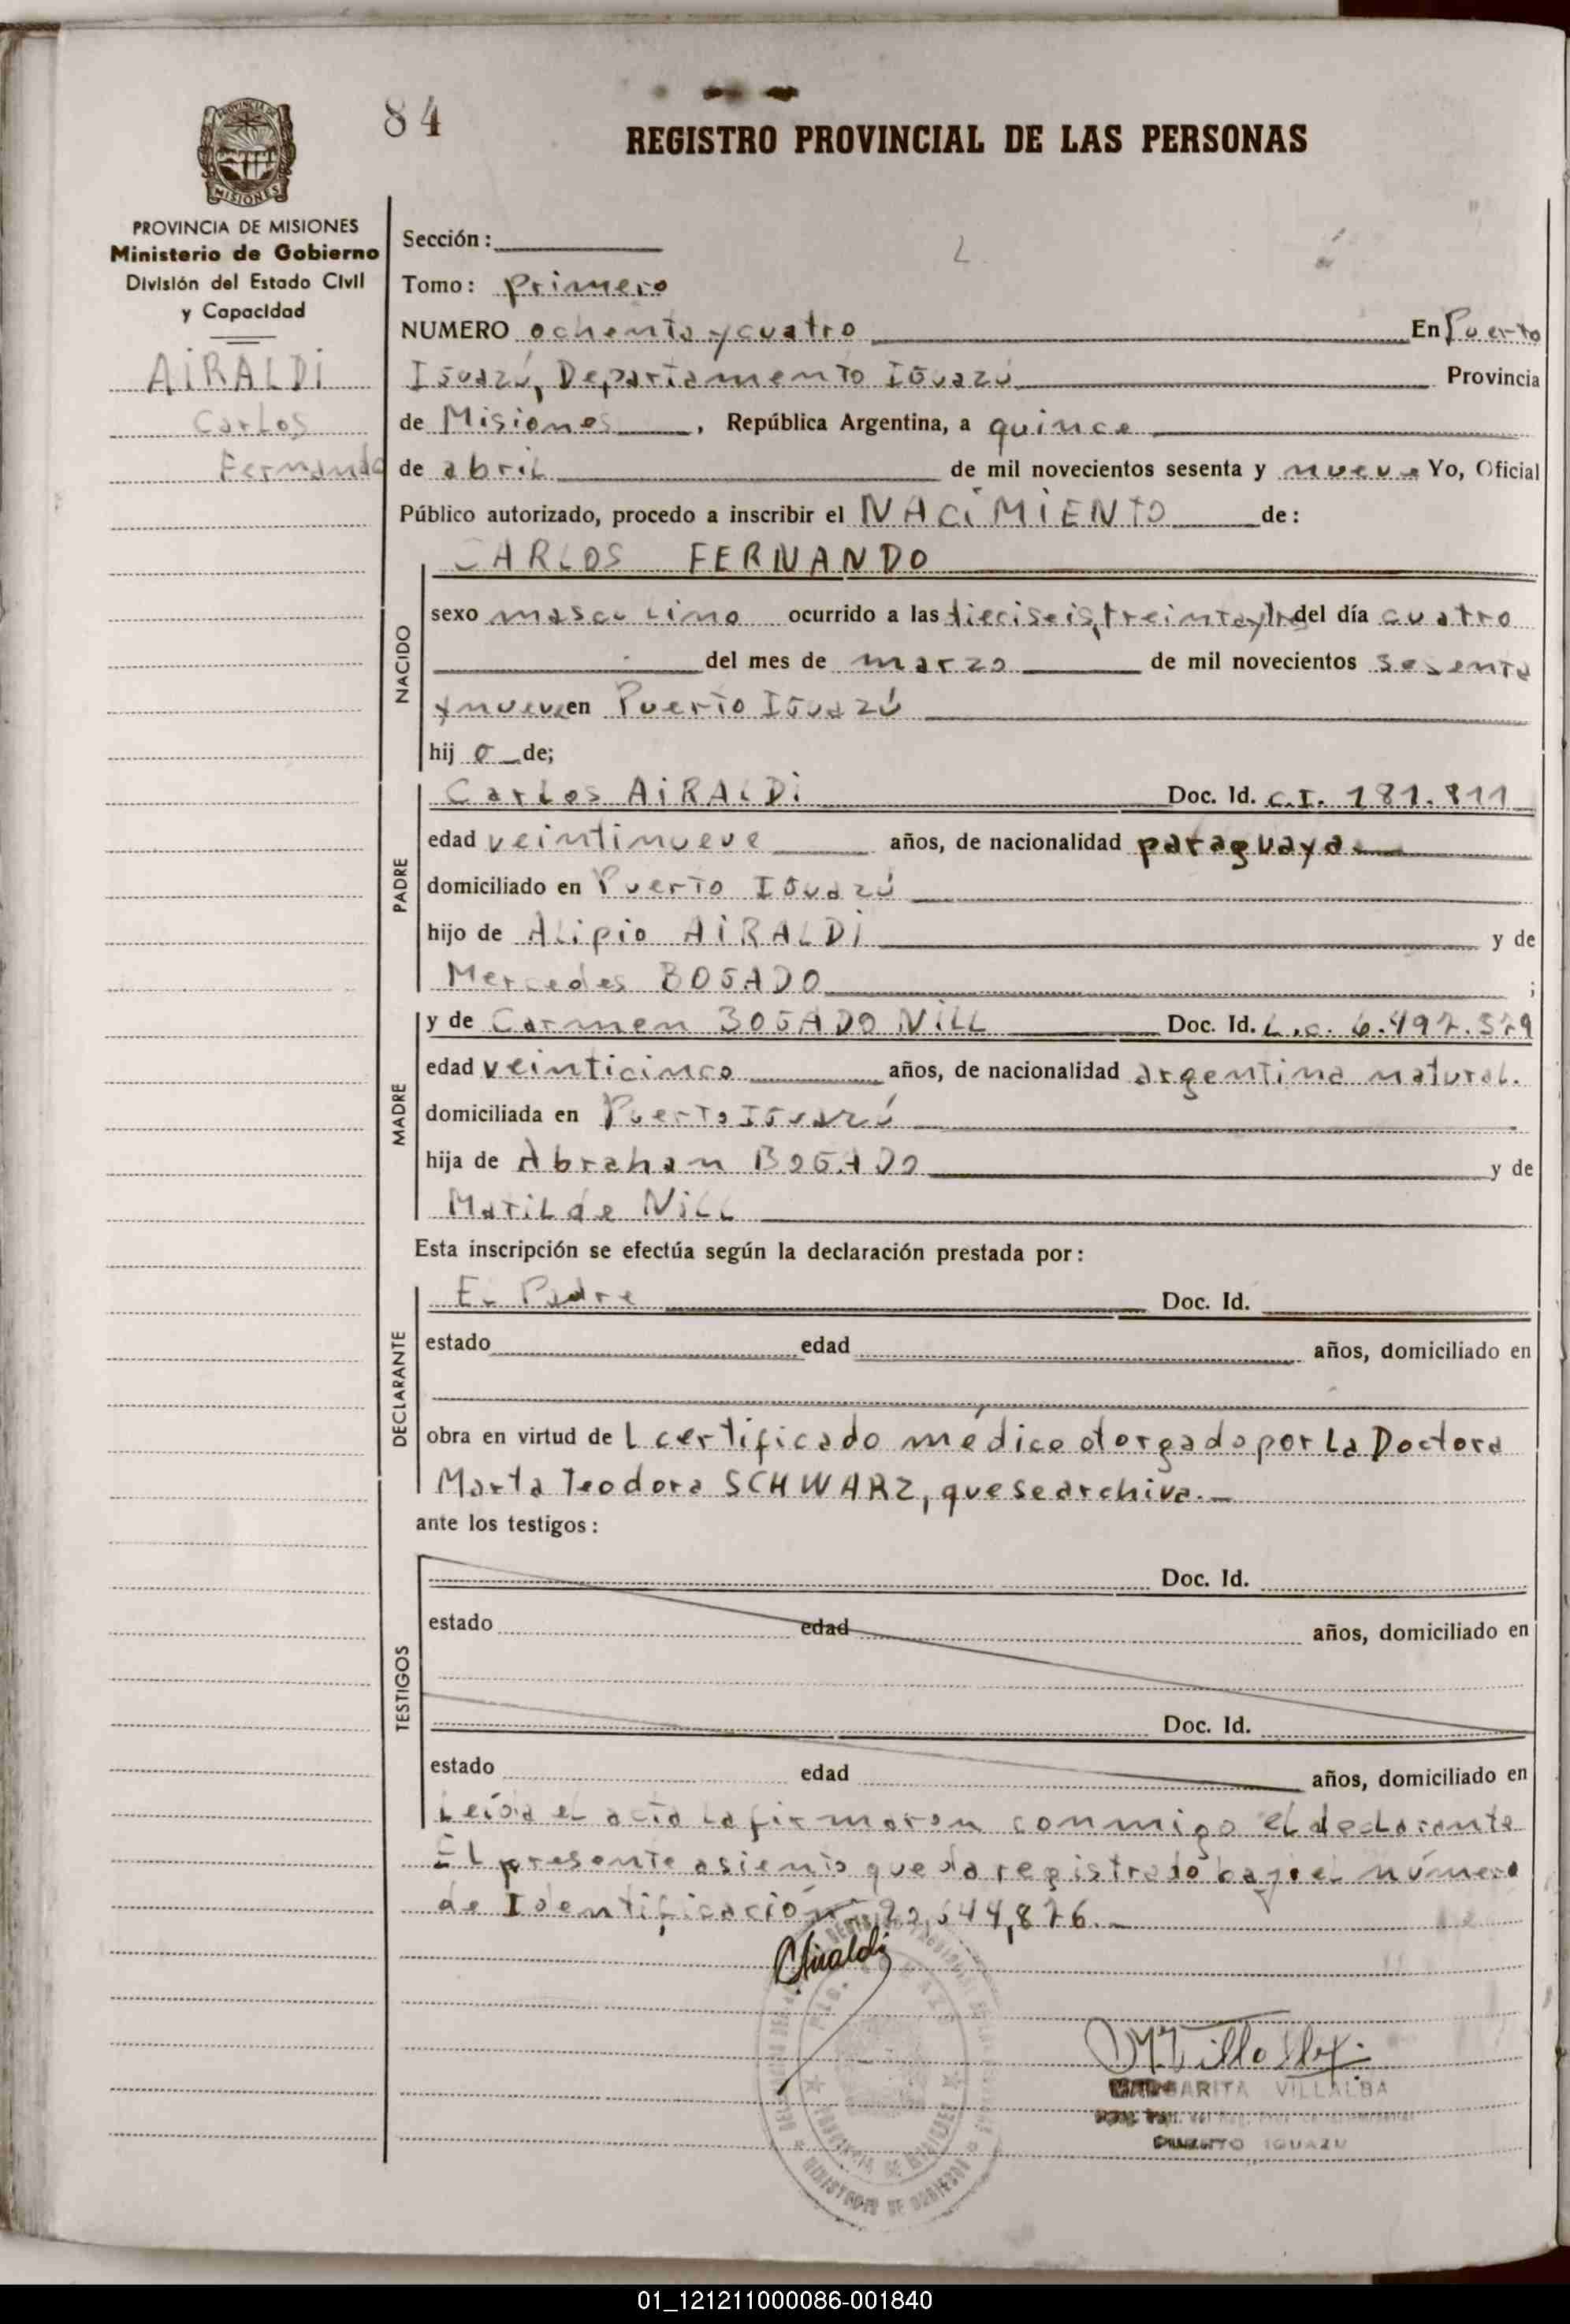 84
REGISTRO PROVINCIAL DE LAS PERSONAS
PROVINCIA DE
MISIONES
PROVINCIA DE MISIONES
Ministerio de Gobierno
División del Estado Civil
y Capacidad
AiRALDi
Carlos
Fernando
Sección:
2
Tomo: Primero
NUMERO ochenta y cuatro En Puerto
Iguazú, Departamento Iguazú Provincia
de Misiones, República Argentina, a quince
de abril de mil novecientos sesenta y nueve Yo, Oficial
Público autorizado, procedo a inscribir el NACiMiENTO de:
CARLOS FERNANDO
NACIDO
sexo masculino ocurrido a las dieciseis, treinta y tres del día cuatro
del mes de marzo de mil novecientos sesenta
y nueve en Puerto Iguazú
hij o de;
PADRE
Carlos AiRALDi Doc. Id. C.I. 181.811
edad veintinueve años, de nacionalidad paraguaya.
domiciliado en Puerto Iguazú
hijo de Alipio AiRALDi y de
Mercedes BOGADO ;
MADRE
y de Carmen BOGADO NiLL Doc. Id. L.c. 6.497.579
edad veinticinco años, de nacionalidad argentina natural.
domiciliada en Puerto Iguazú
hija de Abraham BOGADO y de
Matilde NiLL
Esta inscripción se efectúa según la declaración prestada por:
DECLARANTE
El Padre Doc. Id.
estado edad años, domiciliado en
obra en virtud de l certificado médico otorgado por La Doctora
Marta Teodora SCHWARZ, que se archiva.
ante los testigos:
TESTIGOS
Doc. Id.
estado edad años, domiciliado en
Doc. Id.
estado edad años, domiciliado en
Leída el acta la firmaron conmigo el declarante
El presente asiento queda registrado bajo el número
de Identificación 20,644,876.
CAiraldi
MARGARITA VILLALBA
PUERTO IGUAZU
PROVINCIA DE MISIONES
MINISTERIO DE GOBIERNO
01_121211000086-001840